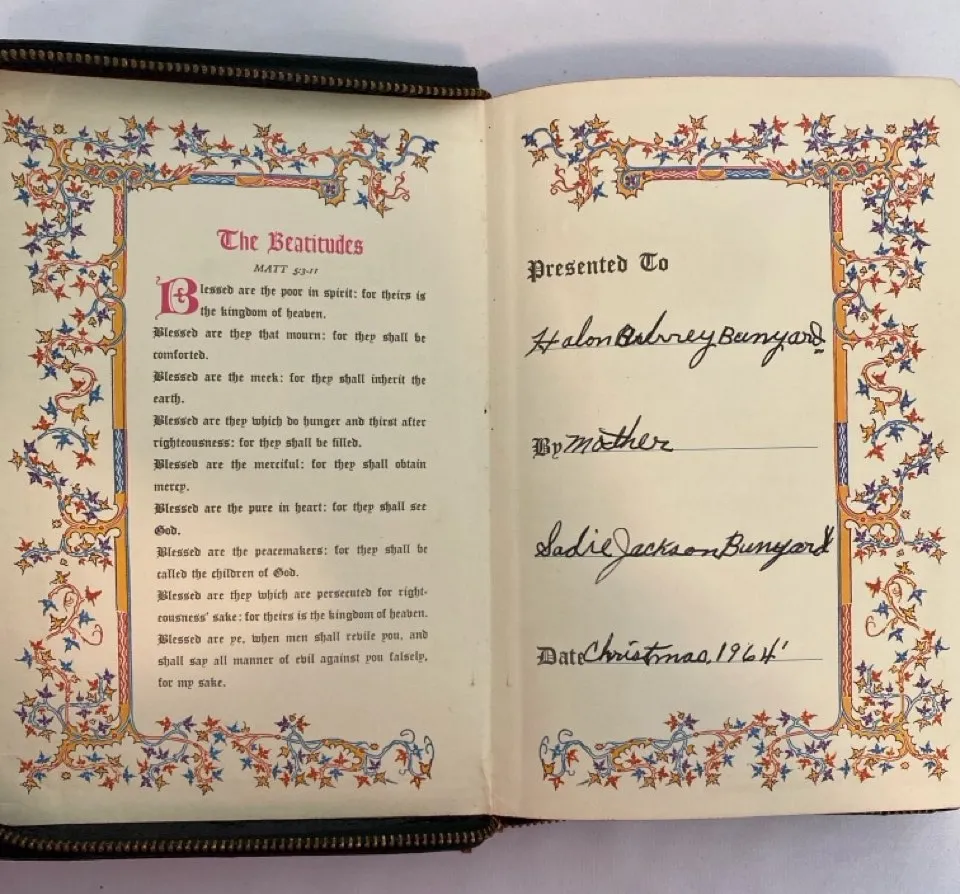 The Beatitudes
MATT 5:3-11
Blessed are the poor in spirit: for theirs is
the kingdom of heaven.
Blessed are they that mourn: for they shall be
comforted.
Blessed are the meek: for they shall inherit the
earth.
Blessed are they which do hunger and thirst after
righteousness: for they shall be filled.
Blessed are the merciful: for they shall obtain
mercy.
Blessed are the pure in heart: for they shall see
God.
Blessed are the peacemakers: for they shall be
called the children of God.
Blessed are they which are persecuted for right-
eousness' sake: for theirs is the kingdom of heaven.
Blessed are ye, when men shall revile you, and
shall say all manner of evil against you falsely,
for my sake.
Presented To
Halon Aubrey Bunyard
By mother
Sadie Jackson Bunyard
Date Christmas, 1964'